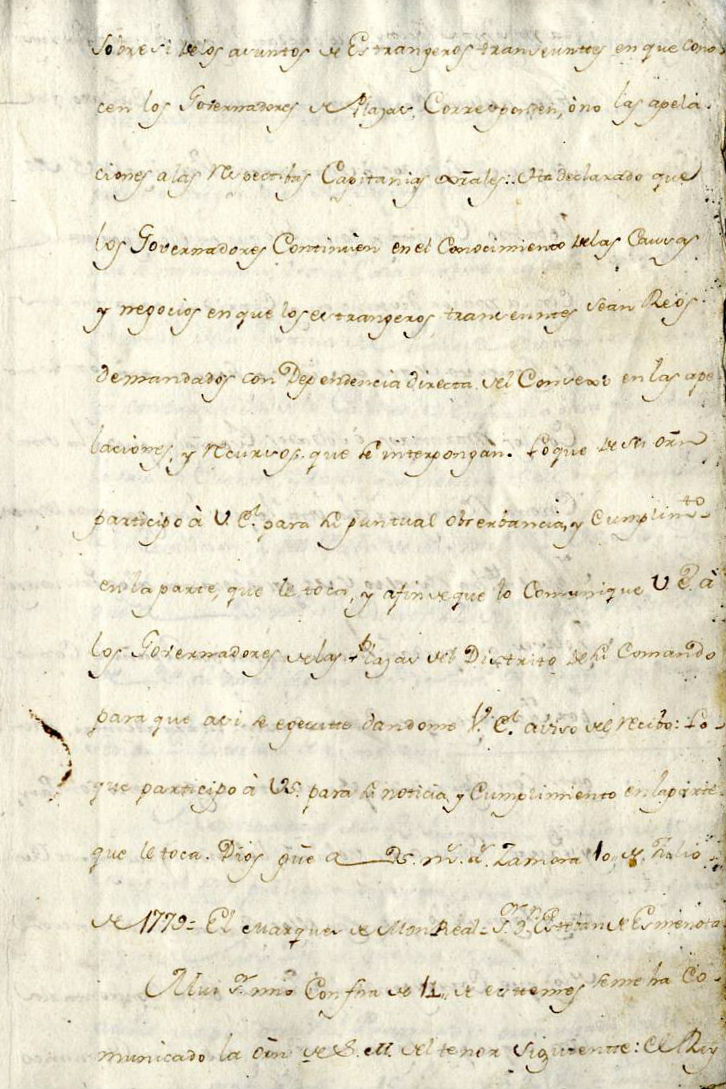 sobre si de los asuntos de Estrangeros transeunttes en que cono-
cen los Governadores de Plazas, Corresponden, ò no las apela-
ciones a las respectibas Capitanias Grãles: Ha declarado que
los Governadores Continùen en el Conocimiento de las Causas
y negocios en que los estrangeros transeuntes sean Reos
demandados con Dependencia directa del Consexo en las ape-
laciones, y recursos que se interpongan. Lo que de su orñ
participo à V.E.ª para su puntual obserbancia, y Cumplim.to
en la parte, que le toca, y afin de que lo Comunique V.E. à
los Governadores de las Plazas del Distrito de su Comando
para que asi se egecutte dandome V.E.ª abiso del recibo: Lo
que participo à VS. para su noticia, y Cumplimiento en la parte
que le toca. Dios güe a VS. m.s a.s Zamora 10 de Julio
de 1779= El Marques de Mon Real= S.r D.n Esteban de Esmenota
Mui S.r mio Con fha de 14 de este mes se me ha Co-
municado la orñ de S.M. del tenor siguientte: el Rey